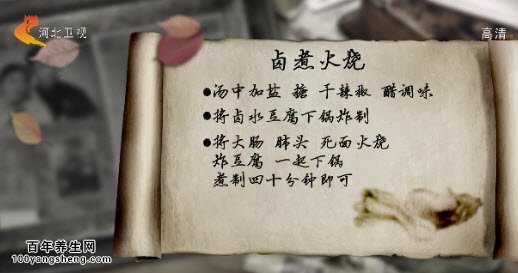 河北卫视
高清
卤煮火烧
●汤中加盐 糖 干辣椒 醋调味
●将卤水豆腐下锅炸制
●将大肠 肺头 死面火烧
炸豆腐 一起下锅
煮制四十分钟即可
百年养生网
100yangsheng.com